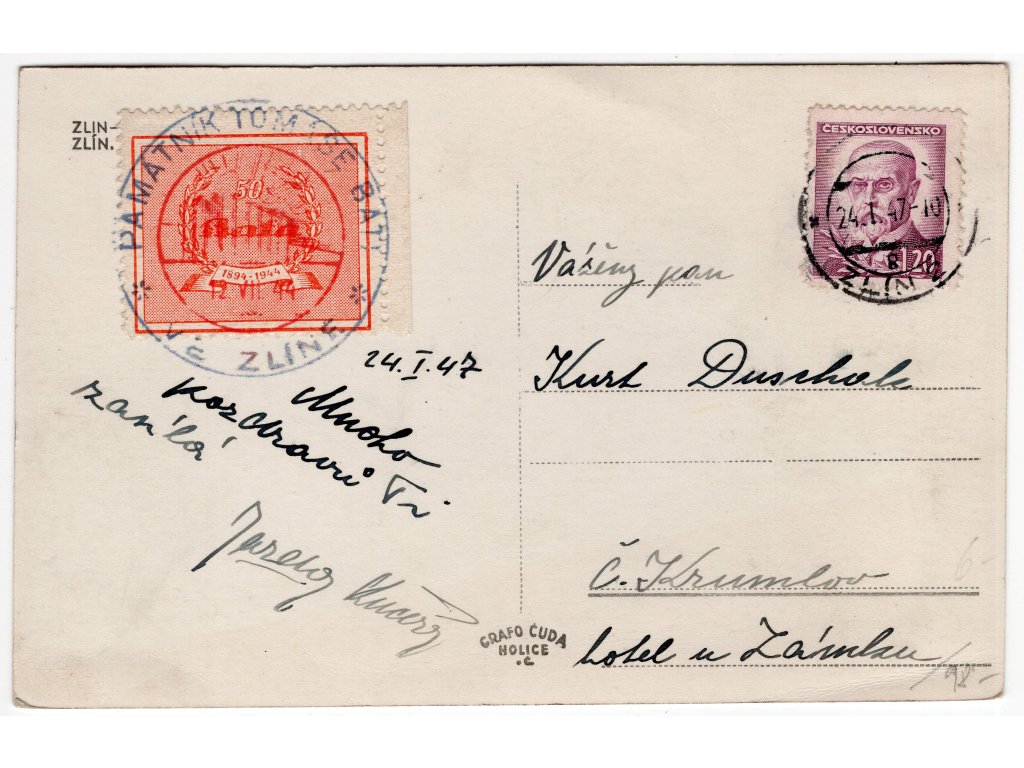 ZLIN-
ZLÍN.
PAMÁTNÍK TOMÁŠE BATI
VE ZLÍNĚ
50
Baťa
1894-1944
12 VII 44
ČESKOSLOVENSKO
24.I.47-10
1.20
ZLÍN 2
24.I.47
Mnoho
pozdravů Ti
zasílá
Kučera
Vážený pan
Kurt Duschak
Č. Krumlov
hotel u Zámku
GRAFO ČUDA
HOLICE
.č
6-
98-